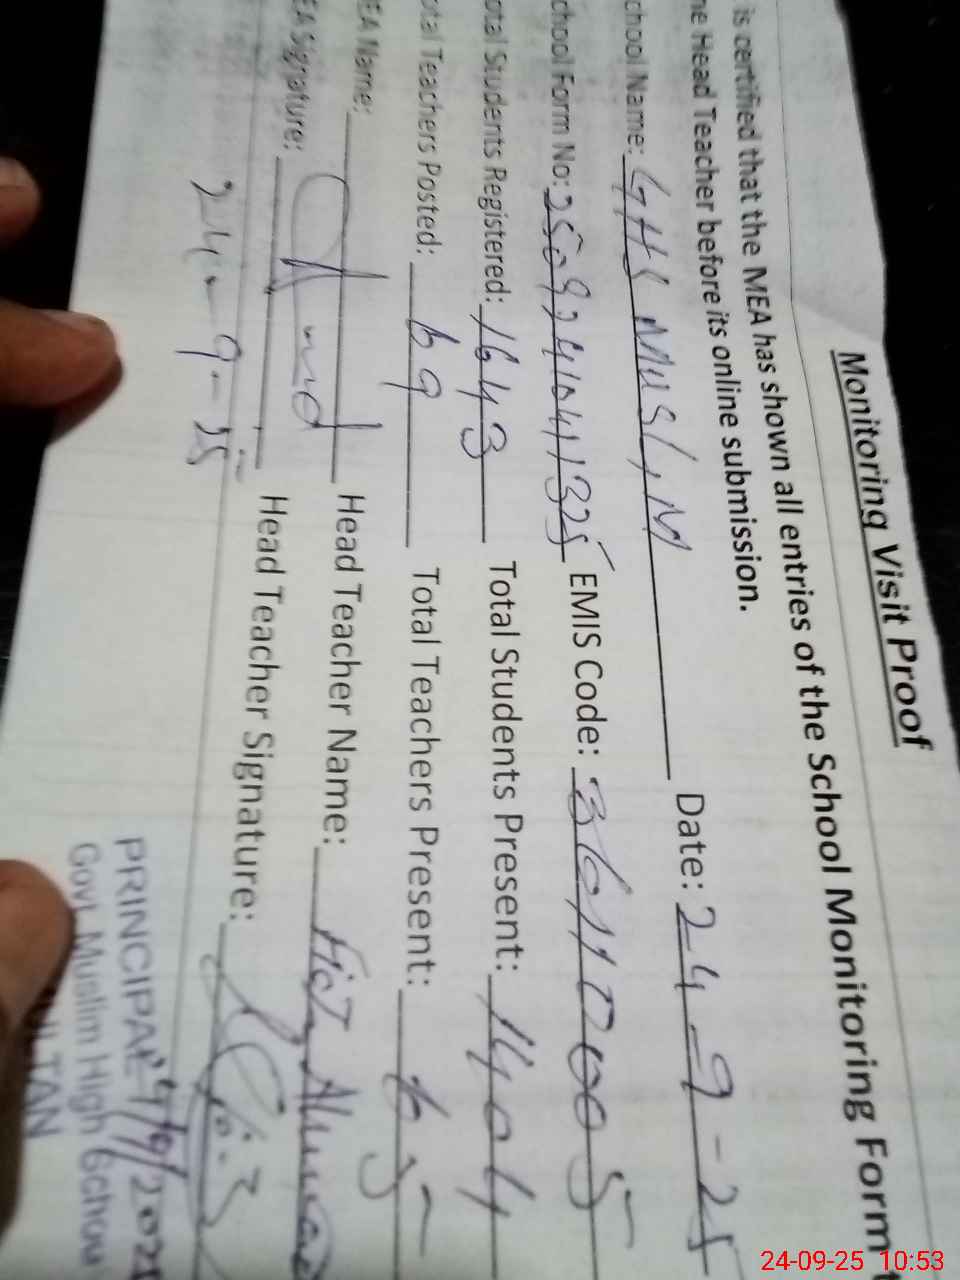 Monitoring Visit Proof
is certified that the MEA has shown all entries of the School Monitoring Form
he Head Teacher before its online submission.
chool Name: GHS Muslim Date: 24-9-25
chool Form No: EMIS Code:
otal Students Registered: 1643 Total Students Present: 1404
otal Teachers Posted: 69 Total Teachers Present: 65
EA Name: Head Teacher Name:
EA Signature: Head Teacher Signature:
24-9-25
PRINCIPAL
Govt. Muslim High School
MULTAN
24-09-25 10:53